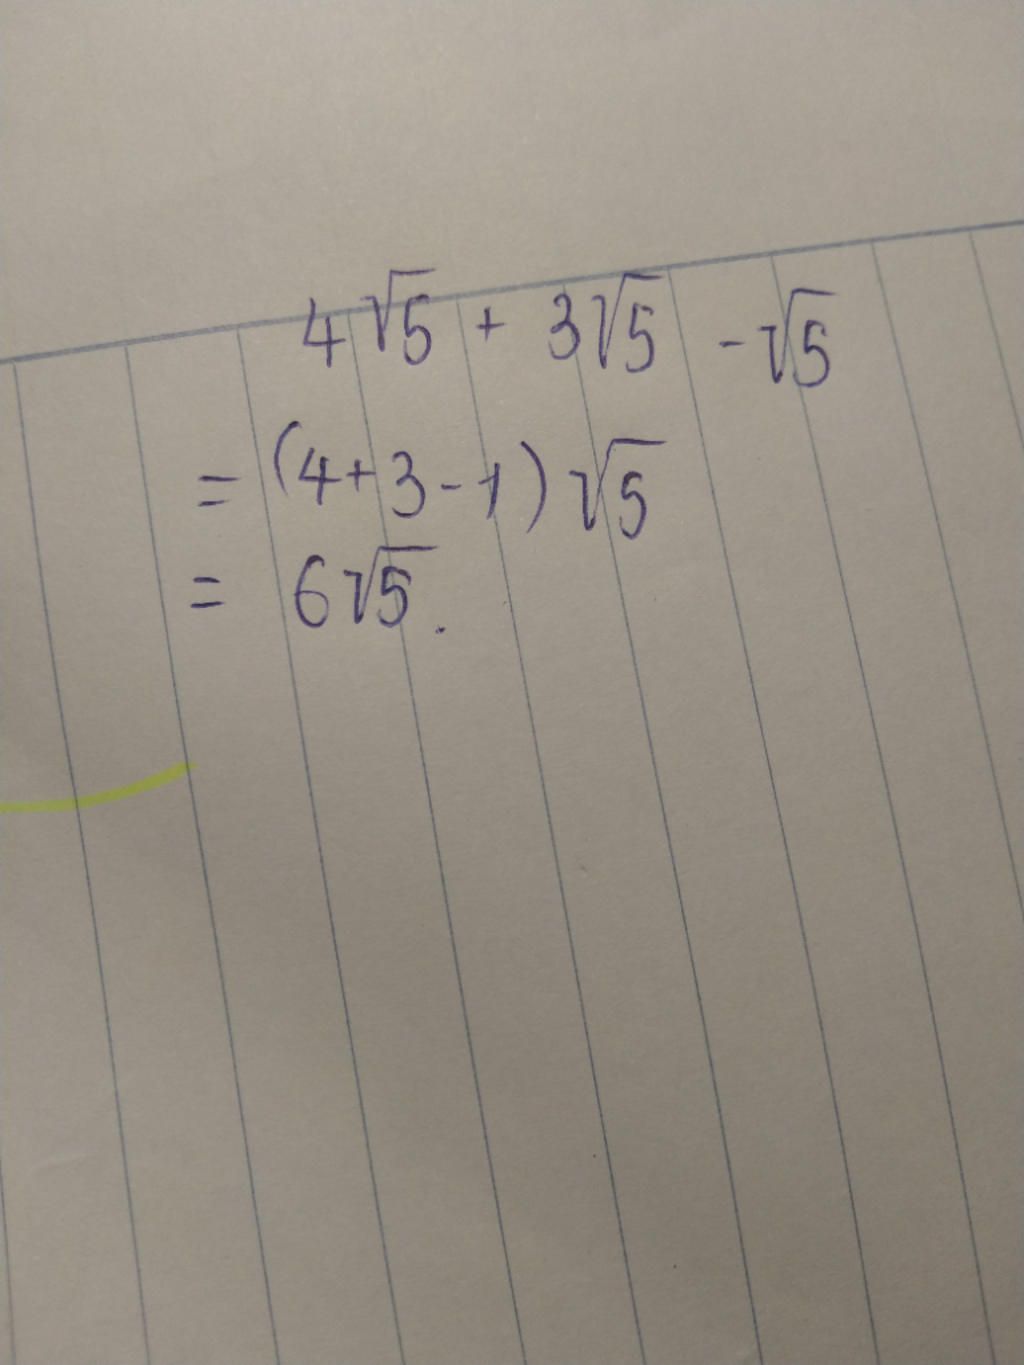 4√5 + 3√5 - √5
= (4+3-1)√5
= 6√5.